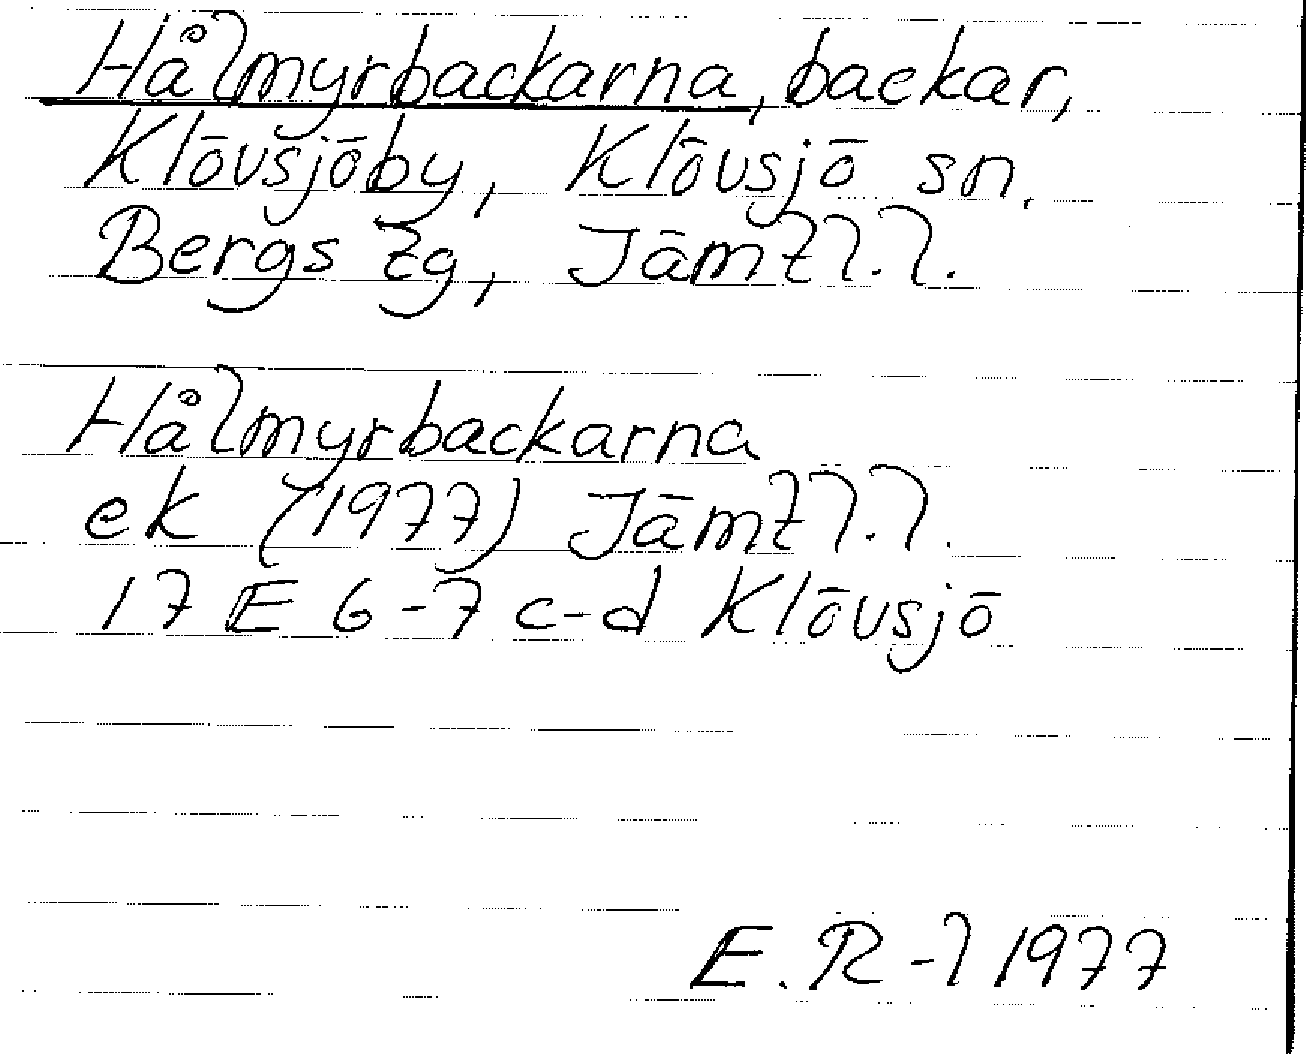 Hålmyrbackarna, backar,
Klövsjöby, Klövsjö sn.
Bergs tg, Jämtl.l.
Hålmyrbackarna
ek (1977) Jämtl.l.
17 E 6-7 c-d Klövsjö
E. R-l 1977